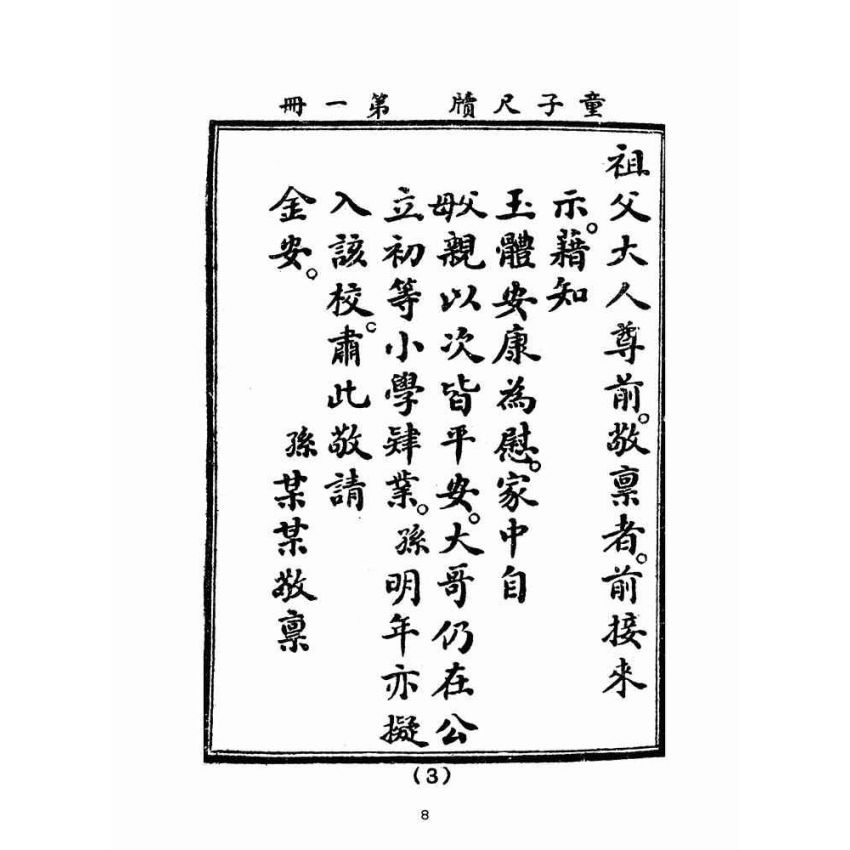 童子尺牘　第一冊
祖父大人尊前。敬禀者。前接來
示。藉知
玉體安康為慰。家中自
父母親以次皆平安。大哥仍在公
立初等小學肄業。孫明年亦擬
入該校。肅此敬請
金安。
孫某某敬禀
(3)
8